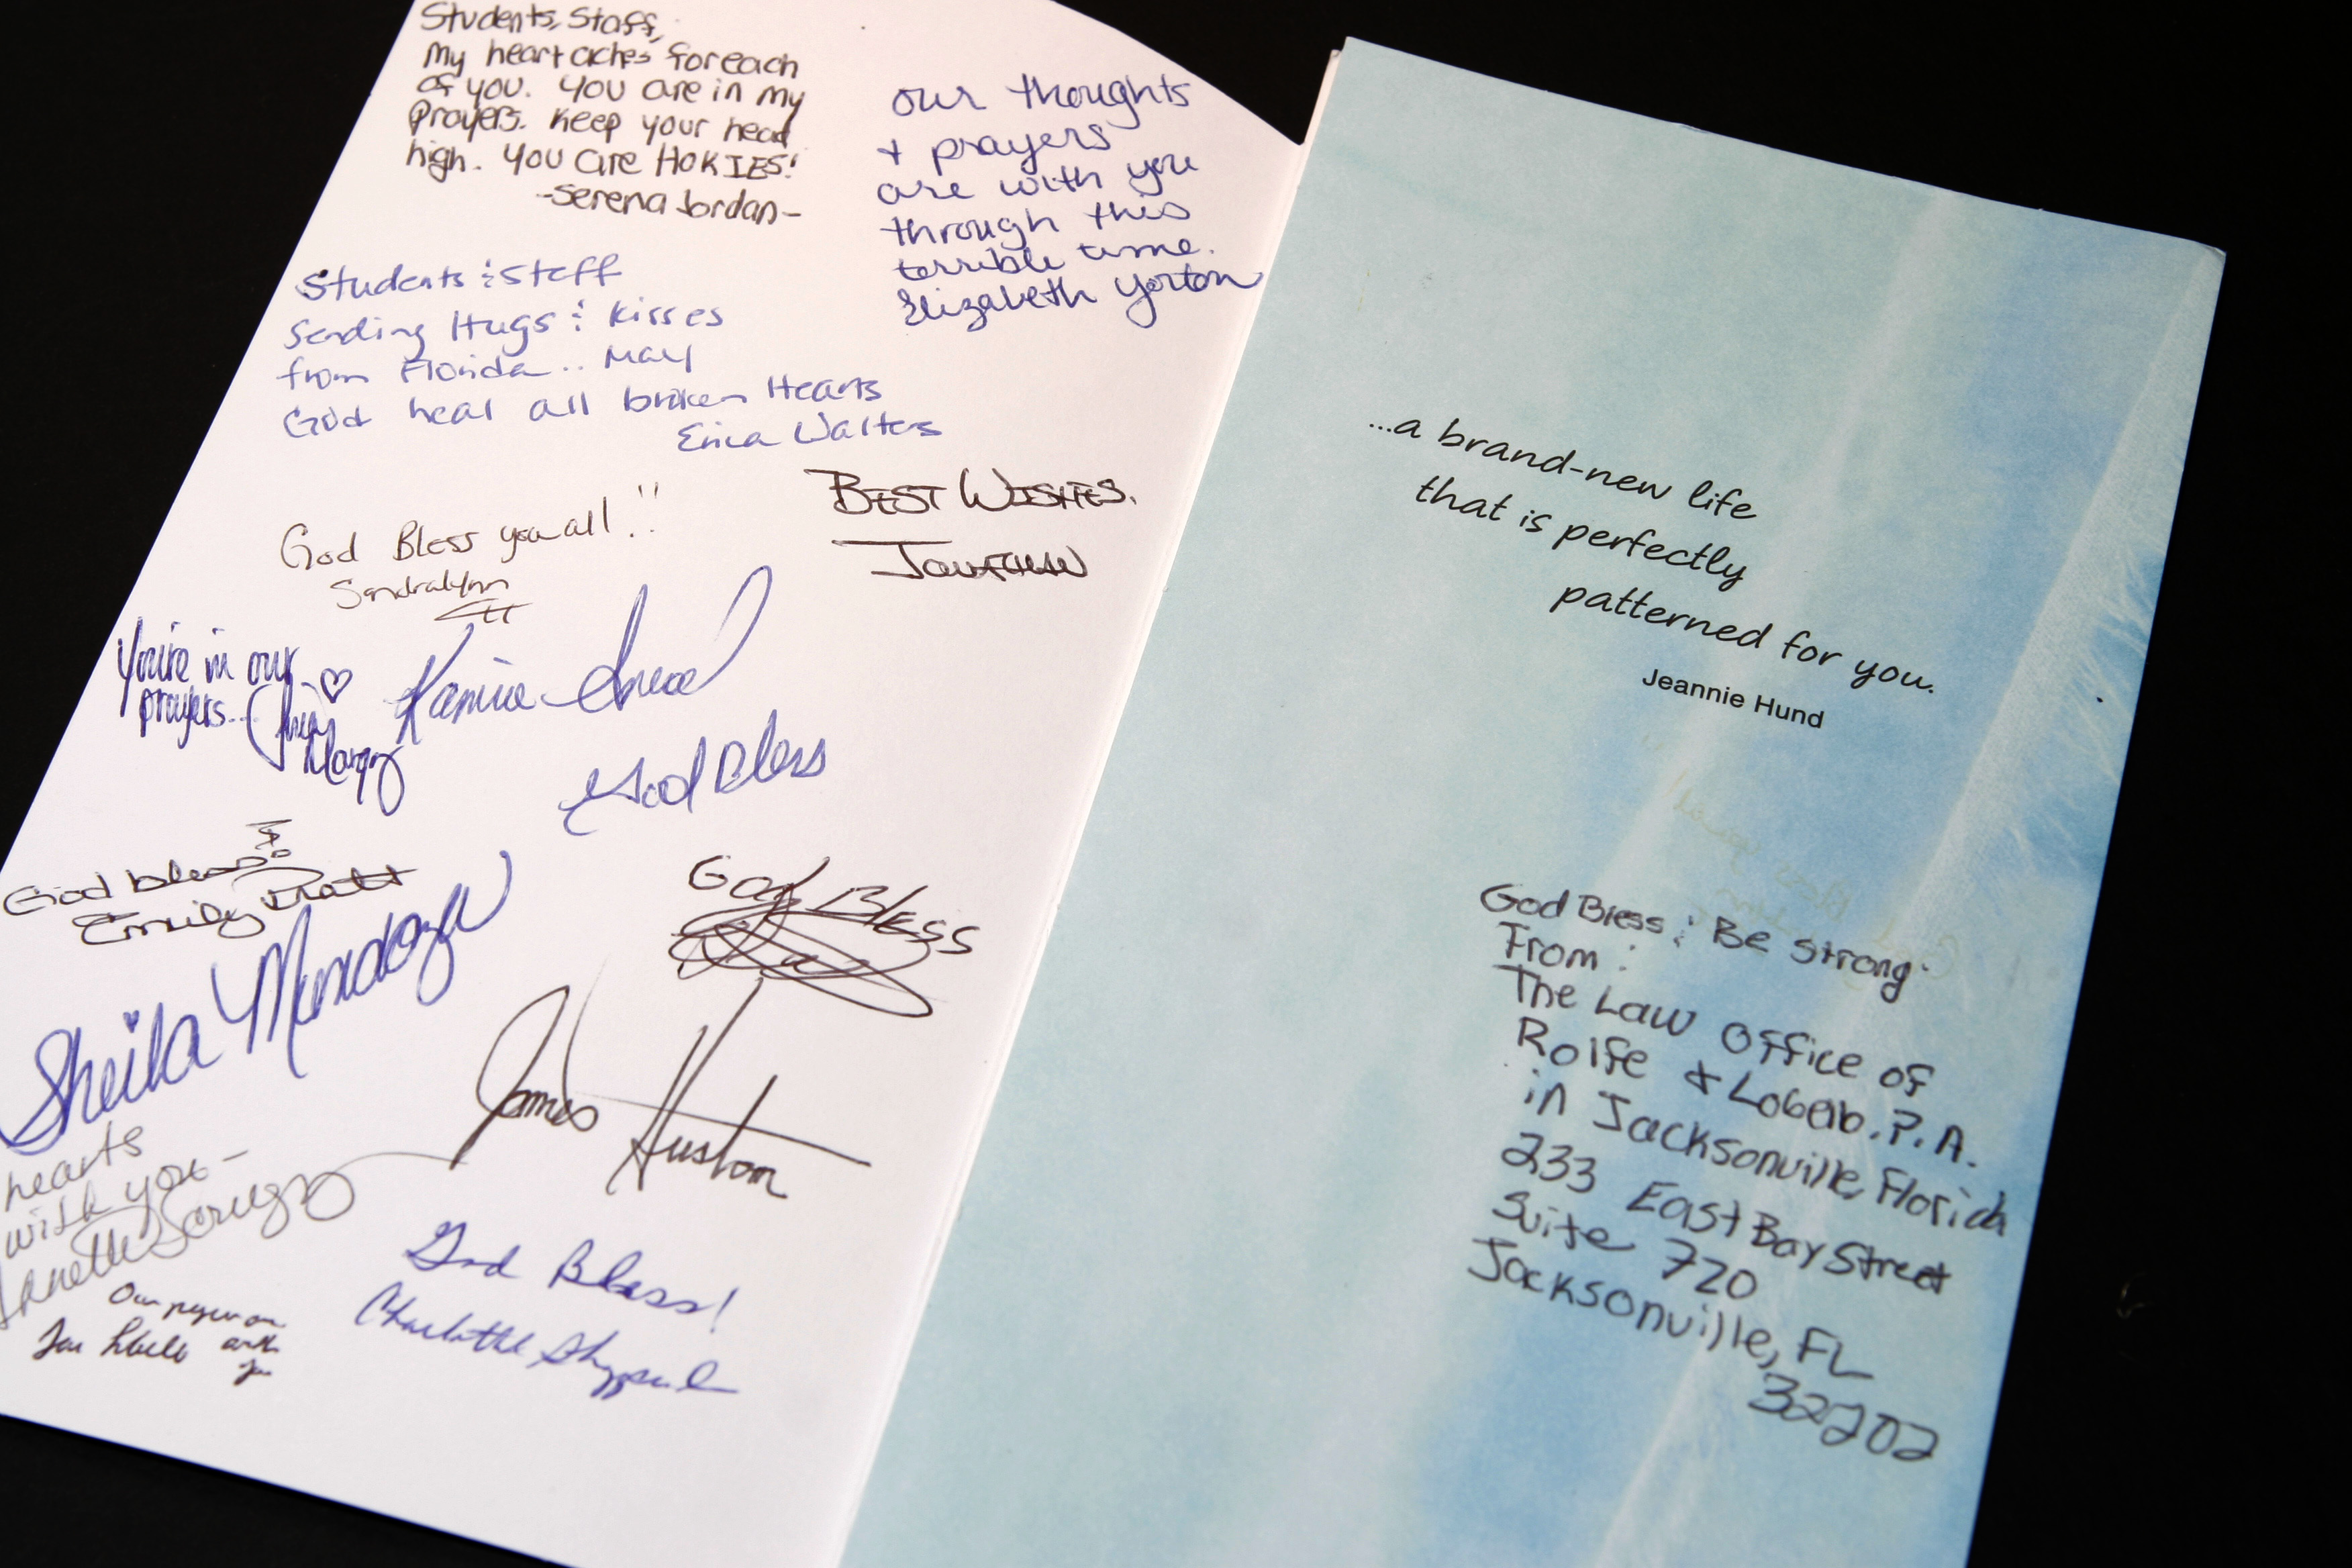 Students, Staff,
My heart aches for each
of you. You are in my
Prayers. Keep your head
high. You are HOKIES!
-Serena Jordan-
our thoughts
+ prayers
are with you
through this
terrible time.
Elizabeth Yorton
Students & Staff
Sending Hugs & Kisses
from Florida... May
God heal all broken Hearts
Erica Walters
God Bless you all!!
Sandralynn
BEST WISHES,
You're in our
prayers...
God Bless
God bless
Emily Pratt
Sheila Mendoza
God Bless
James Huston
hearts
with you -
God Bless!
Charlotte
...a brand-new life
that is perfectly
patterned for you.
Jeannie Hund
God Bless & Be strong.
From:
The Law Office of
Rolfe & Lobello, P.A.
in Jacksonville, Florida
233 East Bay Street
Suite 720
Jacksonville, FL
32202